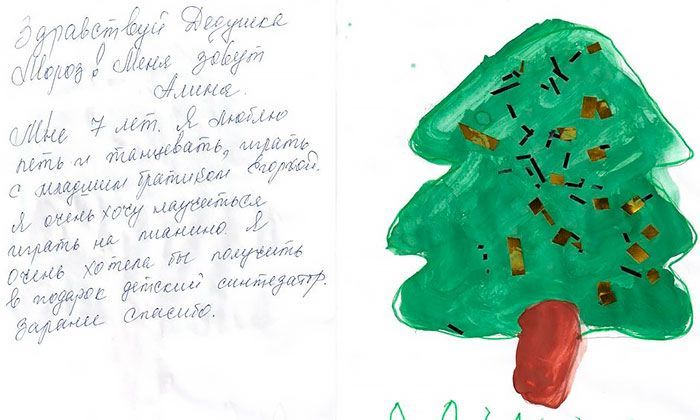 Здравствуй Дедушка
Мороз! Меня зовут
Алина.
Мне 7 лет. Я люблю
петь и танцевать, играть
с младшим братиком Егоркой.
Я очень хочу научиться
играть на пианино. Я
очень хотела бы получить
в подарок детский синтезатор.
Заранее спасибо.